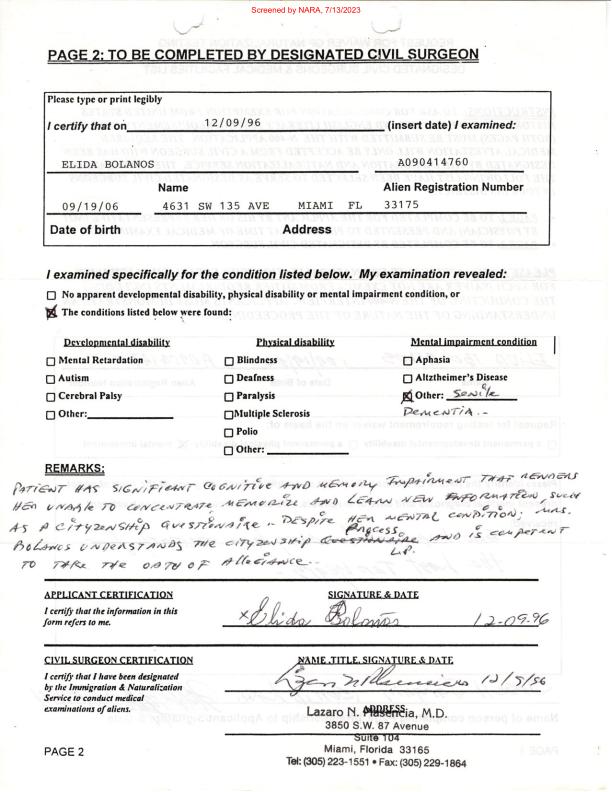 Screened by NARA, 7/13/2023
PAGE 2: TO BE COMPLETED BY DESIGNATED CIVIL SURGEON
Please type or print legibly
I certify that on 12/09/96 (insert date) I examined:
ELIDA BOLANOS A090414760
Name Alien Registration Number
09/19/06 4631 SW 135 AVE MIAMI FL 33175
Date of birth Address
I examined specifically for the condition listed below. My examination revealed:
No apparent developmental disability, physical disability or mental impairment condition, or
The conditions listed below were found:
Developmental disability Physical disability Mental impairment condition
Mental Retardation Blindness Aphasia
Autism Deafness Altztheimer's Disease
Cerebral Palsy Paralysis Other: Senile
Other: Multiple Sclerosis DEMENTIA.-
Polio
Other:
REMARKS:
PATIENT HAS SIGNIFICANT COGNITIVE AND MEMORY IMPAIRMENT THAT RENDERS
HER UNABLE TO CONCENTRATE, MEMORIZE AND LEARN NEW INFORMATION, SUCH
AS A CITYZENSHIP QUESTIONAIRE.. DESPITE HER MENTAL CONDITION; MRS.
PROCESS
BOLANOS UNDERSTANDS THE CITYZENSHIP QUESTIONAIRE AND IS COMPETENT
L.P.
TO TAKE THE OATH OF ALLEGIANCE..
APPLICANT CERTIFICATION SIGNATURE & DATE
I certify that the information in this
form refers to me.
x Elida Bolaños 12-09-96
CIVIL SURGEON CERTIFICATION NAME ,TITLE, SIGNATURE & DATE
I certify that I have been designated
by the Immigration & Naturalization
Service to conduct medical
examinations of aliens.
12/9/96
ADDRESS:
Lazaro N. Plasencia, M.D.
3850 S.W. 87 Avenue
Suite 104
Miami, Florida 33165
Tel: (305) 223-1551 • Fax: (305) 229-1864
PAGE 2